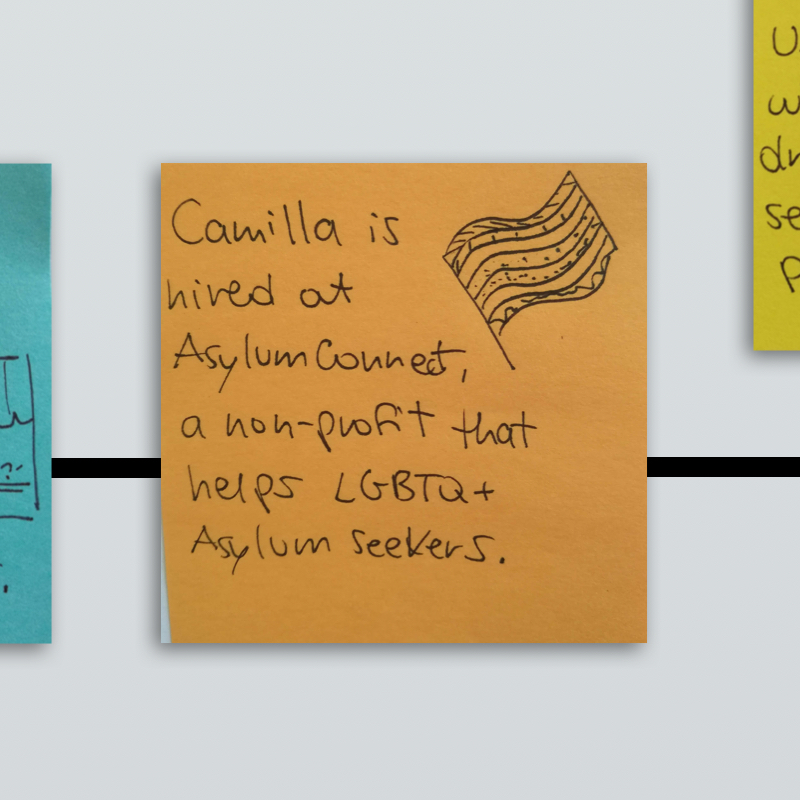 Camilla is
hired at
AsylumConnect,
a non-profit that
helps LGBTQ+
Asylum seekers.